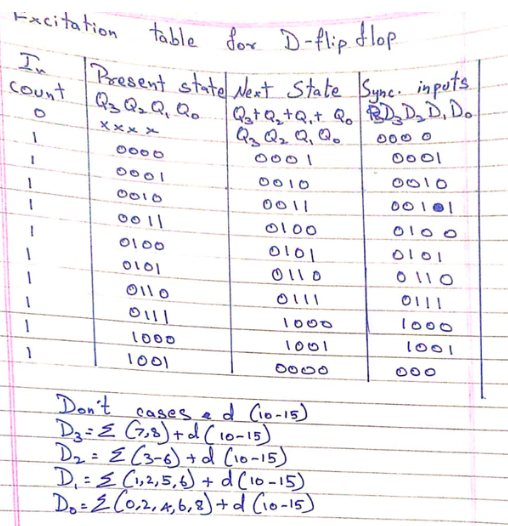 Excitation table for D-flip flop
In count | Present state | Next State | Sync. inputs
Q3 Q2 Q1 Q0 | Q3+ Q2+ Q1+ Q0 | D3 D2 D1 D0
0 | xxxx | Q3 Q2 Q1 Q0 | 0000
1 | 0000 | 0001 | 0001
1 | 0001 | 0010 | 0010
1 | 0010 | 0011 | 0011
1 | 0011 | 0100 | 0100
1 | 0100 | 0101 | 0101
1 | 0101 | 0110 | 0110
1 | 0110 | 0111 | 0111
1 | 0111 | 1000 | 1000
1 | 1000 | 1001 | 1001
1 | 1001 | 0000 | 000
Don't cases d (10-15)
D3 = Σ (7,8) + d (10-15)
D2 = Σ (3-6) + d (10-15)
D1 = Σ (1,2,5,6) + d (10-15)
D0 = Σ (0,2,4,6,8) + d (10-15)